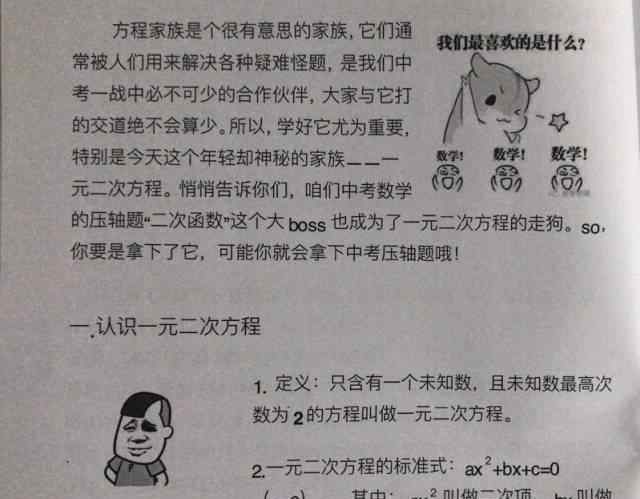 方程家族是个很有意思的家族，它们通
常被人们用来解决各种疑难怪题，是我们中
考一战中必不可少的合作伙伴，大家与它打
的交道绝不会算少。所以，学好它尤为重要，
特别是今天这个年轻却神秘的家族——一
元二次方程。悄悄告诉你们，咱们中考数学
的压轴题“二次函数”这个大boss也成为了一元二次方程的走狗。so，
你要是拿下了它，可能你就会拿下中考压轴题哦！
我们最喜欢的是什么？
数学！ 数学！ 数学！
一.认识一元二次方程
1. 定义：只含有一个未知数，且未知数最高次
数为2的方程叫做一元二次方程。
2.一元二次方程的标准式：ax²+bx+c=0
其中：ax²叫做二次项，bx叫做